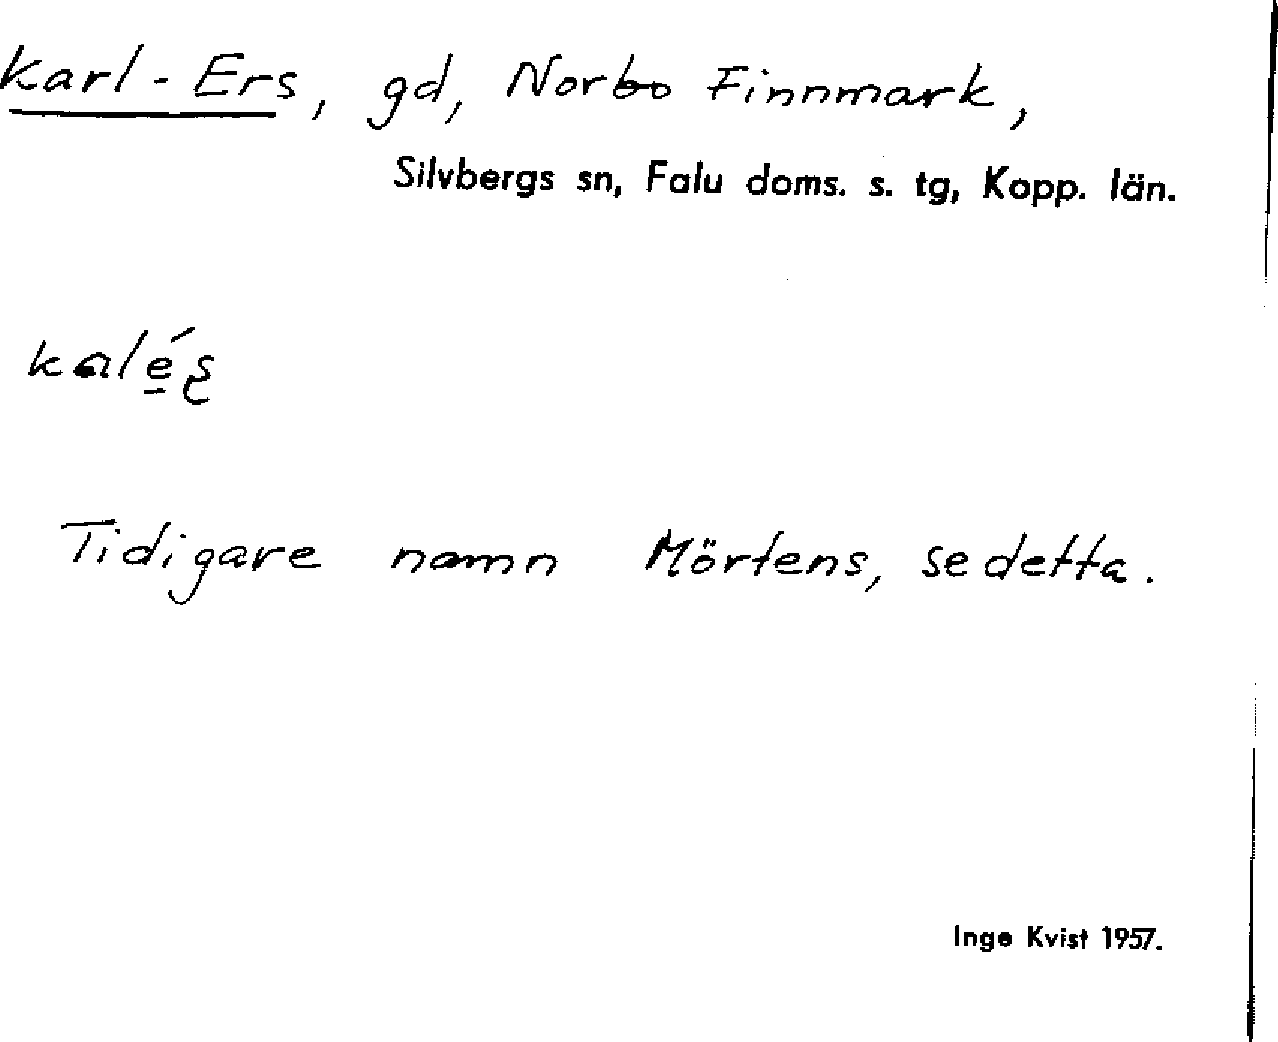 Karl-Ers, gd, Norbo Finnmark,
Silvbergs sn, Falu doms. s. tg, Kopp. län.
Tidigare namn Mörtens, se detta.
Inge Kvist 1957.